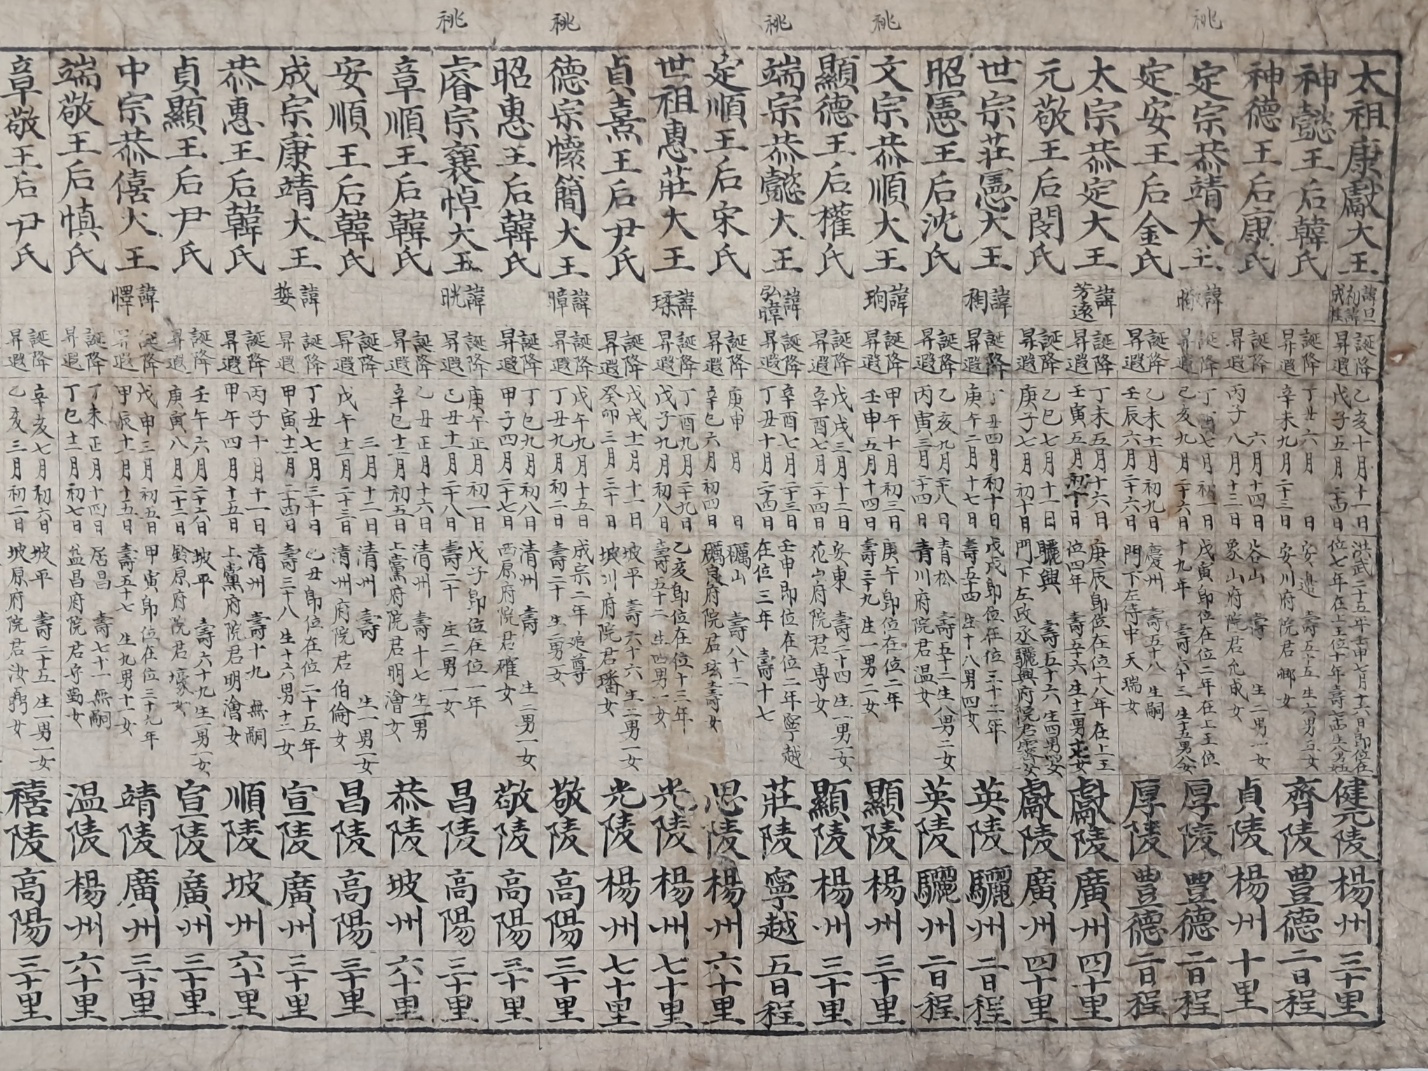 祧 祧 祧 祧 祧
太祖康獻大王 諱旦 初諱成桂 誕降 昇遐 乙亥十月十一日 戊子五月二十四日 健元陵 楊州 三十里
神懿王后韓氏 誕降 昇遐 丁丑六月 日 辛未九月二十三日 安邊 壽五十五 生六男二女 安川府院君 卿女 齊陵 豊德 二日程
神德王后康氏 誕降 昇遐 六月十四日 丙子八月十三日 谷山 壽 生二男一女 象山府院君允成女 貞陵 楊州 十里
定宗恭靖大王 諱 誕降 昇遐 丁 七月初一日 己亥九月二十六日 戊寅卽位在位二年在上王位十九年 壽六十三 厚陵 豊德 二日程
定安王后金氏 誕降 昇遐 乙未十二月初九日 壬辰六月二十六日 慶州 壽五十八 生嗣 門下左侍中天瑞女 厚陵 豊德 二日程
太宗恭定大王 諱芳遠 誕降 昇遐 丁未五月十六日 壬寅五月初十日 庚辰卽位在位十八年在上王位四年 壽五十六 獻陵 廣州 四十里
元敬王后閔氏 誕降 昇遐 乙巳七月十一日 庚子七月初十日 驪興 壽五十六 生四男四女 門下左政丞驪興府院君霽女 獻陵 廣州 四十里
世宗莊憲大王 諱祹 誕降 昇遐 丁丑四月初十日 庚午二月十七日 戊戌卽位在位三十二年 壽五十四 生十八男四女 英陵 驪州 二日程
昭憲王后沈氏 誕降 昇遐 乙亥九月二十八日 丙寅三月二十四日 青松 壽五十二 生八男二女 青川府院君溫女 英陵 驪州 二日程
文宗恭順大王 諱珦 誕降 昇遐 甲午十月初三日 壬申五月十四日 庚午卽位在位二年 壽三十九 生一男二女 顯陵 楊州 三十里
顯德王后權氏 誕降 昇遐 戊戌三月十二日 辛酉七月二十四日 安東 壽二十四 生一男一女 花山府院君專女 顯陵 楊州 三十里
端宗恭懿大王 諱弘暐 誕降 昇遐 辛酉七月二十三日 丁丑十月二十四日 壬申卽位在位二年寧越在位三年 壽十七 莊陵 寧越 五日程
定順王后宋氏 誕降 昇遐 庚申 月 日 辛巳六月初四日 礪山 壽八十二 礪良府院君玹壽女 思陵 楊州 六十里
世祖惠莊大王 諱瑈 誕降 昇遐 丁酉九月二十九日 戊子九月初八日 乙亥卽位在位十三年 壽五十二 生四男一女 光陵 楊州 七十里
貞熹王后尹氏 誕降 昇遐 戊戌十一月十一日 癸卯三月三十日 坡平 壽六十六 生二男一女 坡川府院君璠女 光陵 楊州 七十里
德宗懷簡大王 諱暲 誕降 昇遐 戊午九月十五日 丁丑九月初二日 成宗二年追尊 壽二十 生二男一女 敬陵 高陽 三十里
昭惠王后韓氏 誕降 昇遐 丁巳九月初八日 甲子四月二十七日 清州 壽 生二男一女 西原府院君確女 敬陵 高陽 三十里
睿宗襄悼大王 諱晄 誕降 昇遐 庚午正月初一日 己丑十一月二十八日 戊子卽位在位一年 壽二十 生二男一女 昌陵 高陽 三十里
章順王后韓氏 誕降 昇遐 乙丑正月十六日 辛巳十二月初五日 清州 壽十七 生一男 上黨府院君明澮女 恭陵 坡州 六十里
安順王后韓氏 誕降 昇遐 三月十二日 戊午十二月二十三日 清州 壽 生一男二女 清川府院君伯倫女 昌陵 高陽 三十里
成宗康靖大王 諱娎 誕降 昇遐 丁丑七月三十日 甲寅十二月二十四日 己丑卽位在位二十五年 壽三十八 生十六男十二女 宣陵 廣州 三十里
恭惠王后韓氏 誕降 昇遐 丙子十月十一日 甲午四月十五日 清州 壽十九 無嗣 上黨府院君明澮女 順陵 坡州 六十里
貞顯王后尹氏 誕降 昇遐 壬午六月二十六日 庚寅八月二十二日 坡平 壽六十九 生一男一女 鈴原府院君壕女 宣陵 廣州 三十里
中宗恭僖大王 諱懌 誕降 昇遐 戊申三月初五日 甲辰十一月十五日 甲寅卽位在位三十九年 壽五十七 生九男十一女 靖陵 廣州 三十里
端敬王后愼氏 誕降 昇遐 丁未正月十四日 丁巳十二月初七日 居昌 壽七十一 無嗣 益昌府院君守勤女 温陵 楊州 六十里
章敬王后尹氏 誕降 昇遐 辛亥七月初六日 乙亥三月初二日 坡平 壽二十五 生一男一女 坡原府院君汝弼女 禧陵 高陽 三十里